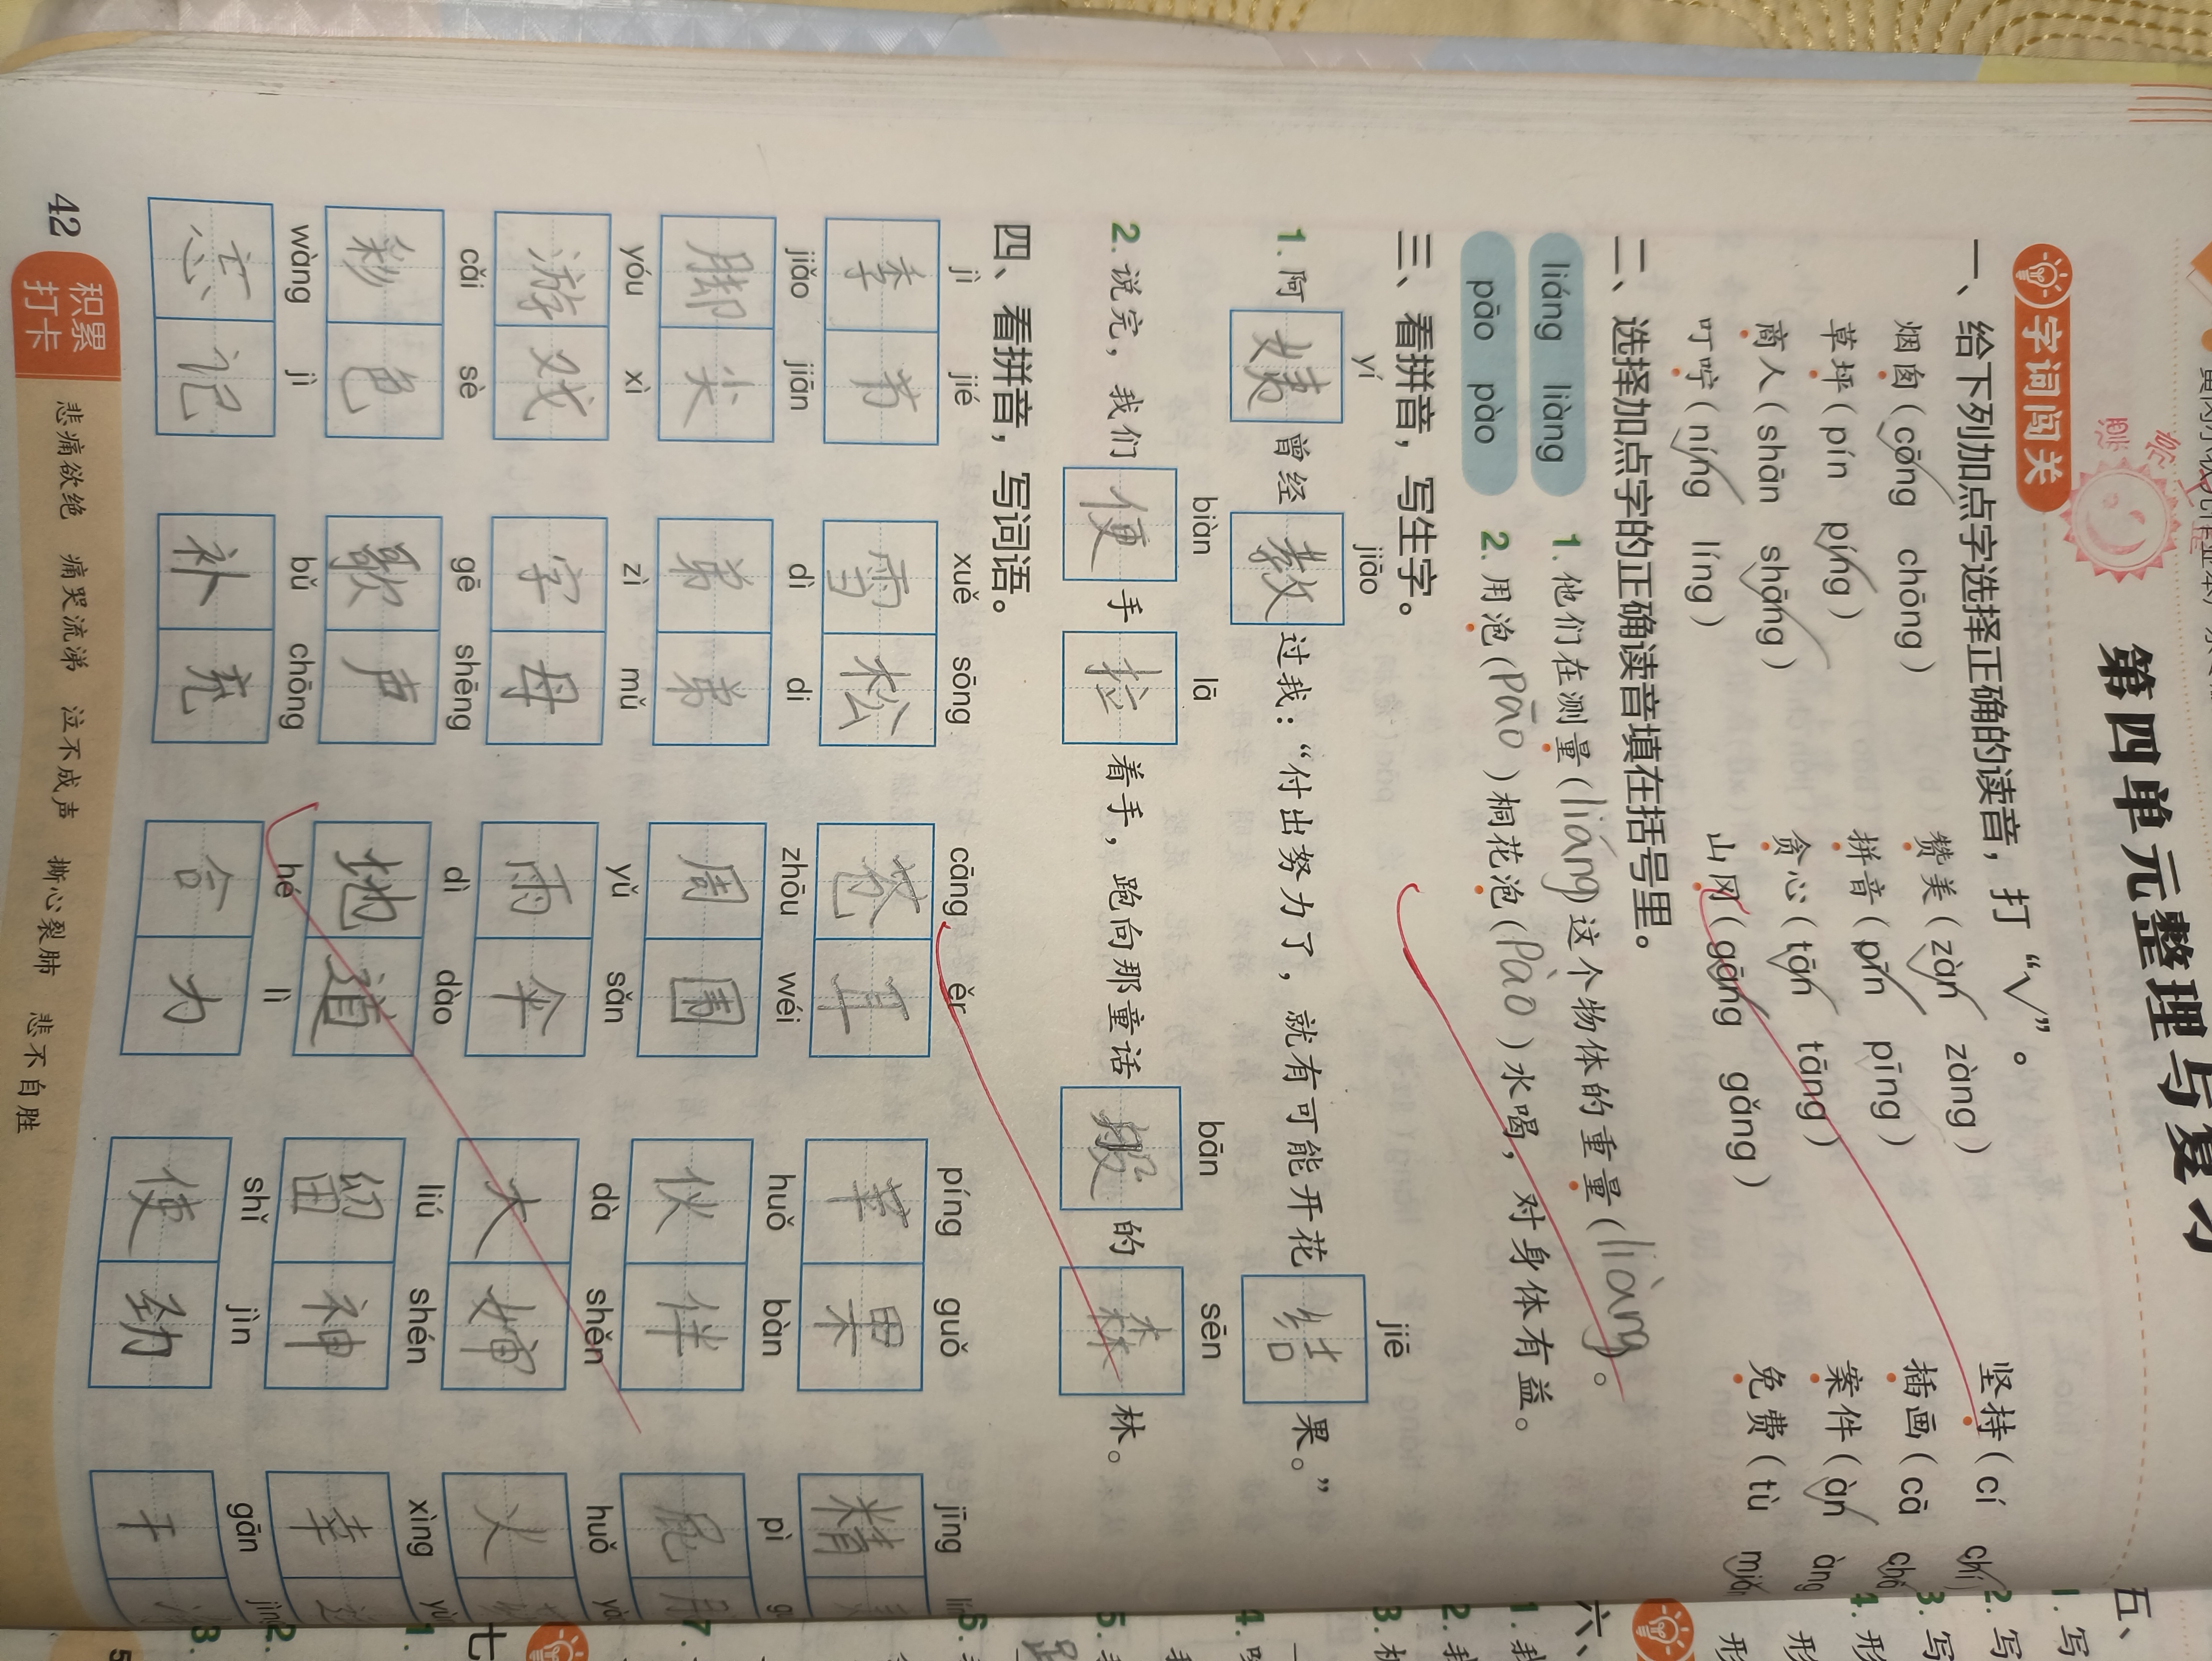 第四单元整理与复习
字词闯关
一、给下列加点字选择正确的读音，打“√”。
烟囱（cōng√ chōng） 赞美（zàn√ zàng） 坚持（cí chí√
草坪（pín píng√） 拼音（pīn√ pīng） 插画（cā chā√
商人（shān shāng√） 贪心（tān√ tāng） 案件（àn√ àng
叮咛（níng√ líng） 山冈（gāng√ gǎng） 免费（tù miǎn√
二、选择加点字的正确读音填在括号里。
liáng liàng 1. 他们在测量（liáng）这个物体的重量（liàng）。
pāo pào 2. 用泡（Pāo）桐花泡（Pào）水喝，对身体有益。
三、看拼音，写生字。
yí jiāo jiē
1. 阿姨曾经教过我：“付出努力了，就有可能开花结果。”
biàn lā bān sēn
2. 说完，我们便手拉着手，跑向那童话般的森林。
四、看拼音，写词语。
jì jié xuě sōng cāng ěr píng guǒ jīng lín
季节 雪松 苍耳 苹果 精
jiǎo jiān dì di zhōu wéi huǒ bàn pì g
脚尖 弟弟 周围 伙伴 屁
yóu xì zì mǔ yǔ sǎn dà shěn huǒ yà
游戏 字母 雨伞 大婶 火
cǎi sè gē shēng dì dào liú shén xìng yù
彩色 歌声 地道 留神 幸
wàng jì bǔ chōng hé lì shǐ jìn gān jìn
忘记 补充 合力 使劲 干
42 积累打卡 悲痛欲绝 痛哭流涕 泣不成声 撕心裂肺 悲不自胜
五、
1. 写
2. 写
3. 写
4. 形
六、
1. 我
2. 我
3.
4.
5.
6.
7.
七
1.
2.
3.